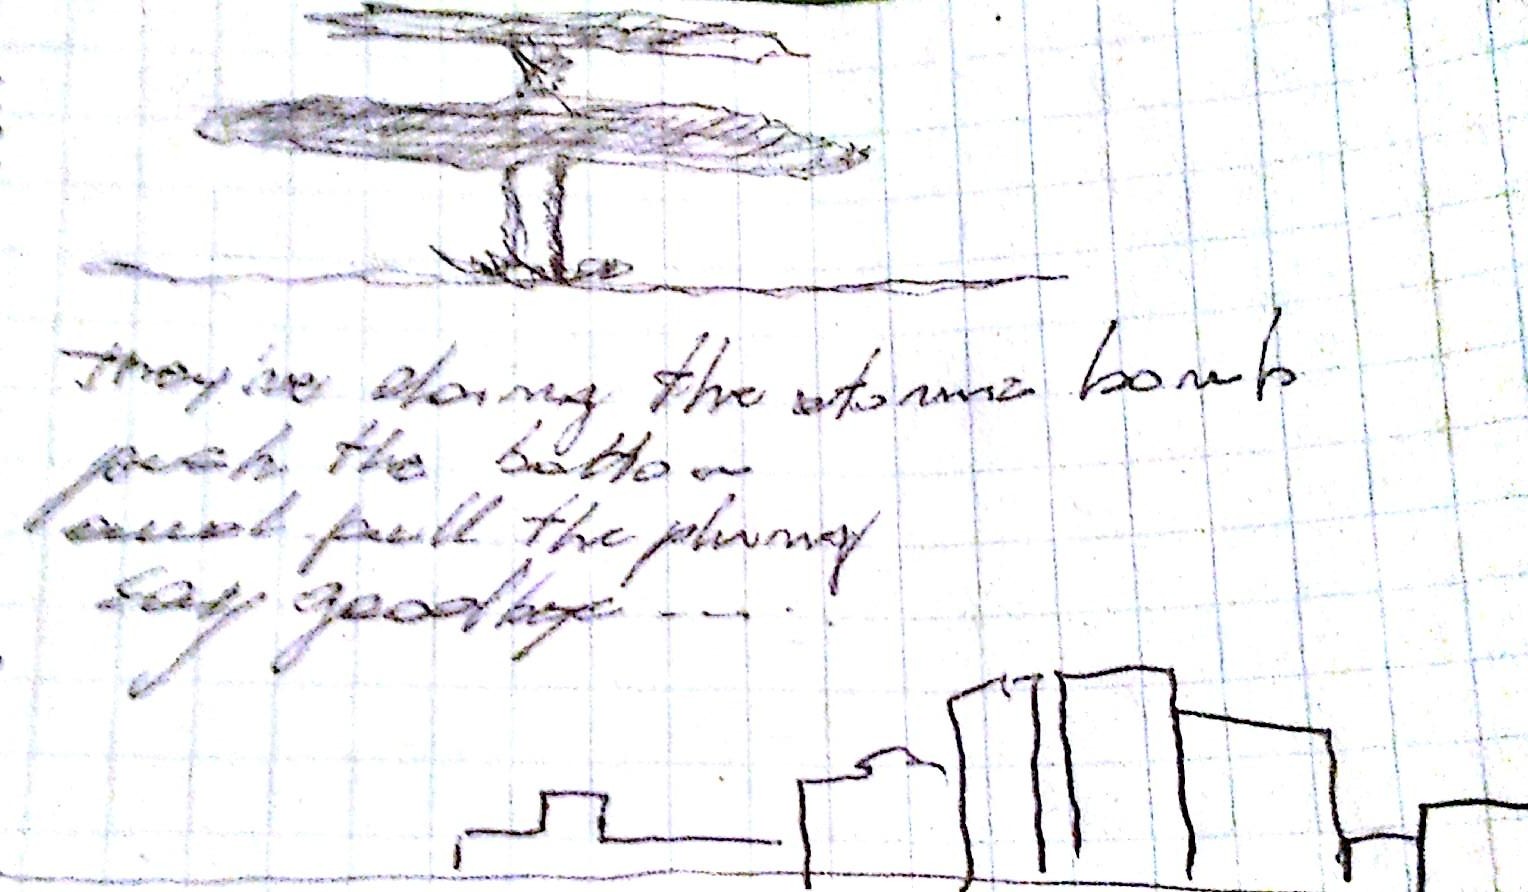 They're doing the atomic bomb
push the button
and pull the plung
say goodbye ----